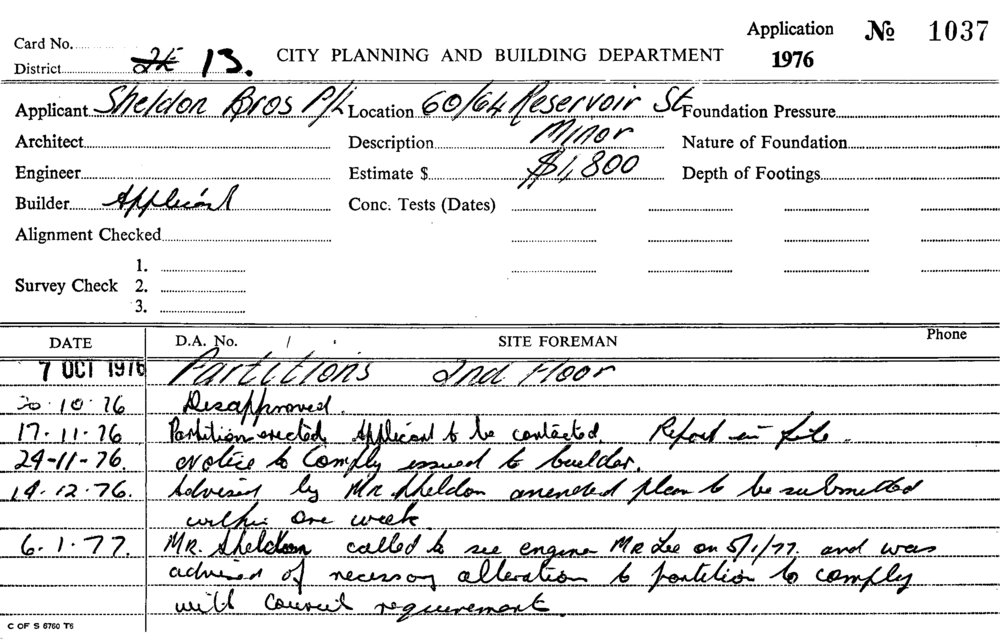 Application Nº 1037
Card No.
District 2E 13. CITY PLANNING AND BUILDING DEPARTMENT 1976
Applicant Sheldon Bros P/L Location 60/64 Reservoir St Foundation Pressure
Architect Description Minor Nature of Foundation
Engineer Estimate $ $1,800 Depth of Footings
Builder Applicant Conc. Tests (Dates)
Alignment Checked
1.
Survey Check 2.
3.
DATE D.A. No. / SITE FOREMAN Phone
7 OCT 1976 Partitions 2nd Floor
20.10.76 Disapproved.
17.11.76 Partition erected. Applicant to be contacted. Report in file.
24-11-76. Notice to Comply issued to builder.
14.12.76. Advised by Mr Sheldon amended plan to be submitted
within one week
6.1.77. Mr. Sheldon called to see engineer Mr Lee on 5/1/77. and was
advised of necessary alteration to partition to comply
with Council requirement.
C OF S 6760 T6